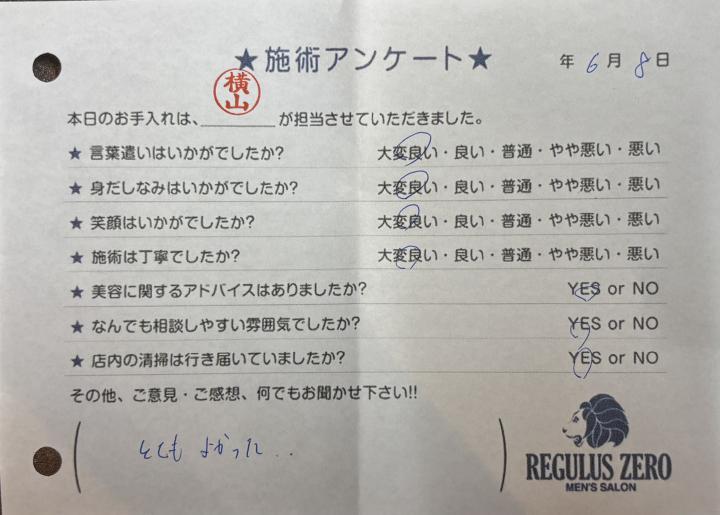 ★施術アンケート★
年 6月 8日
横山
本日のお手入れは、________が担当させていただきました。
★ 言葉遣いはいかがでしたか? 大変良い・良い・普通・やや悪い・悪い
★ 身だしなみはいかがでしたか? 大変良い・良い・普通・やや悪い・悪い
★ 笑顔はいかがでしたか? 大変良い・良い・普通・やや悪い・悪い
★ 施術は丁寧でしたか? 大変良い・良い・普通・やや悪い・悪い
★ 美容に関するアドバイスはありましたか? YES or NO
★ なんでも相談しやすい雰囲気でしたか? YES or NO
★ 店内の清掃は行き届いていましたか? YES or NO
その他、ご意見・ご感想、何でもお聞かせ下さい!!
とても よかった..
REGULUS ZERO
MEN'S SALON